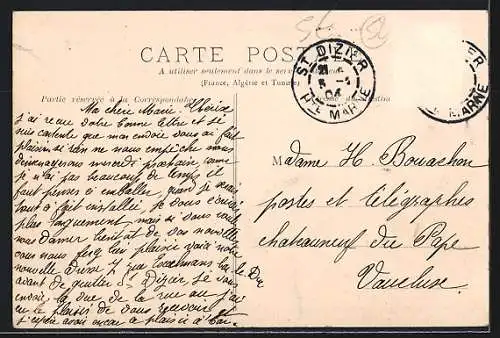 CARTE POSTALE
A utiliser seulement dans le service
(France, Algérie et Tunisie)
Partie réservée à la Correspondance
ST DIZIER
Hte MARNE
04
MARNE
Ma chère Marie-
j'ai reçu votre bonne lettre et je
suis contente que mon envoie vous ai fait
plaisir si rien ne nous empêche nous
déménageons mercredi prochain comme
je n'ai pas beaucoup de temps il
faut penser à emballer quand je serai
tout à fait installé je vous écrirai
plus longuement mais si vous voulez
nous donner bientôt de vos nouvelles
vous nous ferez bien plaisir voici notre
nouvelle rue
avant de quitter St Dizier je vous
envoie la vue de la rue ou j'ai
eu le plaisir de vous recevoir et
j'espère avoir encore à plaisir à
Madame H. Bouachon
postes et télégraphes
chateauneuf du Pape
Vaucluse.